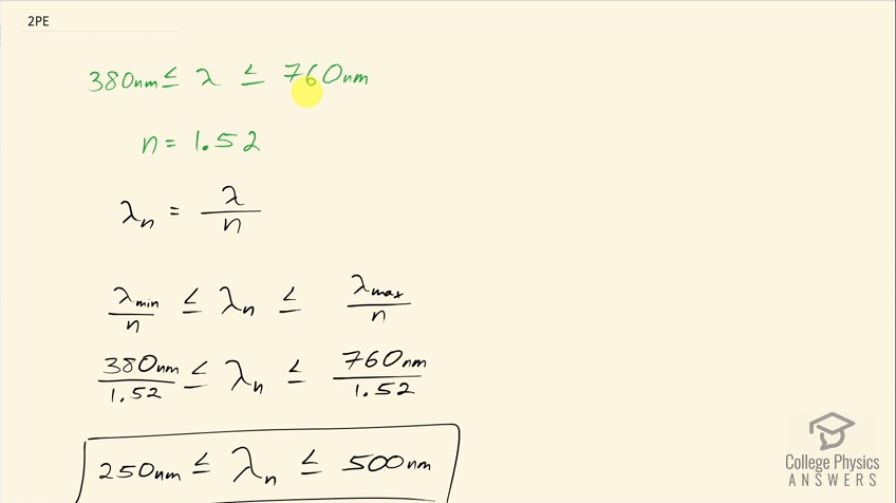 2PE
380nm ≤ λ ≤ 760nm
n = 1.52
λn = λ/n
λmin/n ≤ λn ≤ λmax/n
380nm/1.52 ≤ λn ≤ 760nm/1.52
250nm ≤ λn ≤ 500nm
College Physics
ANSWERS